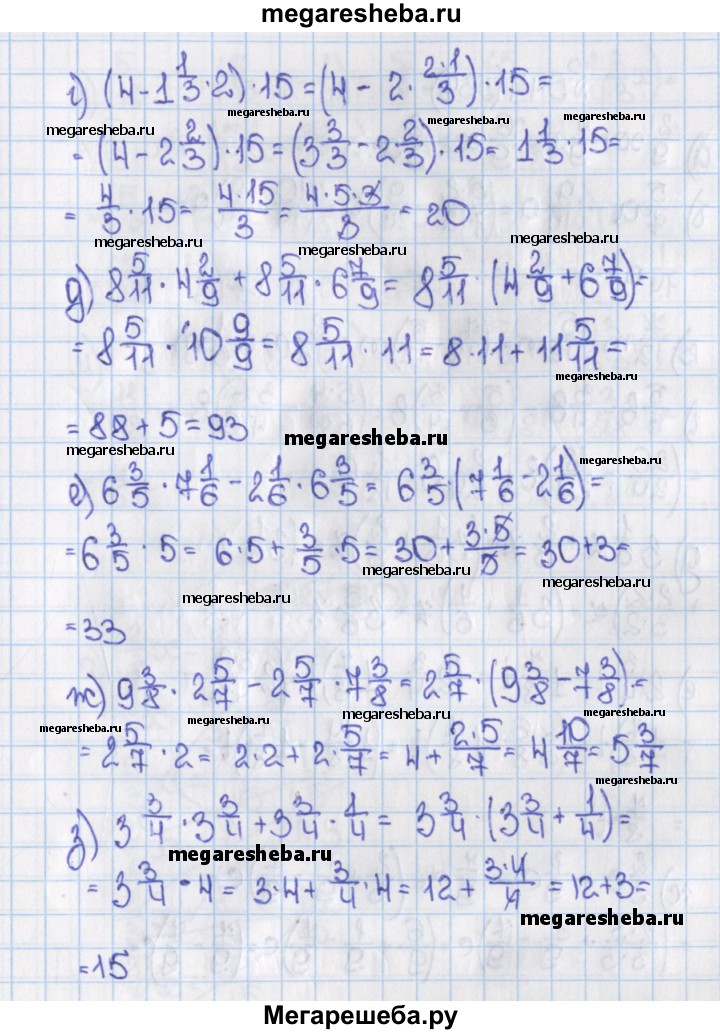 megaresheba.ru
г) (4 - 1 1/3 · 2) · 15 = (4 - 2 · 2·1/3) · 15 =
megaresheba.ru megaresheba.ru megaresheba.ru megaresheba.ru
= (4 - 2 2/3) · 15 = (3 3/3 - 2 2/3) · 15 = 1 1/3 · 15 =
= 4/3 · 15 = 4·15/3 = 4·5·3/3 = 20
megaresheba.ru megaresheba.ru megaresheba.ru
д) 8 5/11 · 4 2/9 + 8 5/11 · 6 7/9 = 8 5/11 · (4 2/9 + 6 7/9) =
= 8 5/11 · 10 9/9 = 8 5/11 · 11 = 8·11 + 11 5/11 =
megaresheba.ru
= 88 + 5 = 93
megaresheba.ru megaresheba.ru megaresheba.ru
е) 6 3/5 · 7 1/6 - 2 1/6 · 6 3/5 = 6 3/5 · (7 1/6 - 2 1/6) =
= 6 3/5 · 5 = 6·5 + 3/5 · 5 = 30 + 3·5/5 = 30 + 3 =
megaresheba.ru megaresheba.ru
megaresheba.ru
= 33
ж) 9 3/8 · 2 5/7 - 2 5/7 · 7 3/8 = 2 5/7 · (9 3/8 - 7 3/8) =
megaresheba.ru megaresheba.ru megaresheba.ru megaresheba.ru
= 2 5/7 · 2 = 2·2 + 2 · 5/7 = 4 + 2·5/7 = 4 10/7 = 5 3/7
megaresheba.ru
з) 3 3/4 · 3 3/4 + 3 3/4 · 1/4 = 3 3/4 · (3 3/4 + 1/4) =
megaresheba.ru megaresheba.ru
= 3 3/4 · 4 = 3·4 + 3/4 · 4 = 12 + 3·4/4 = 12 + 3 =
megaresheba.ru
= 15
Мегарешеба.ру